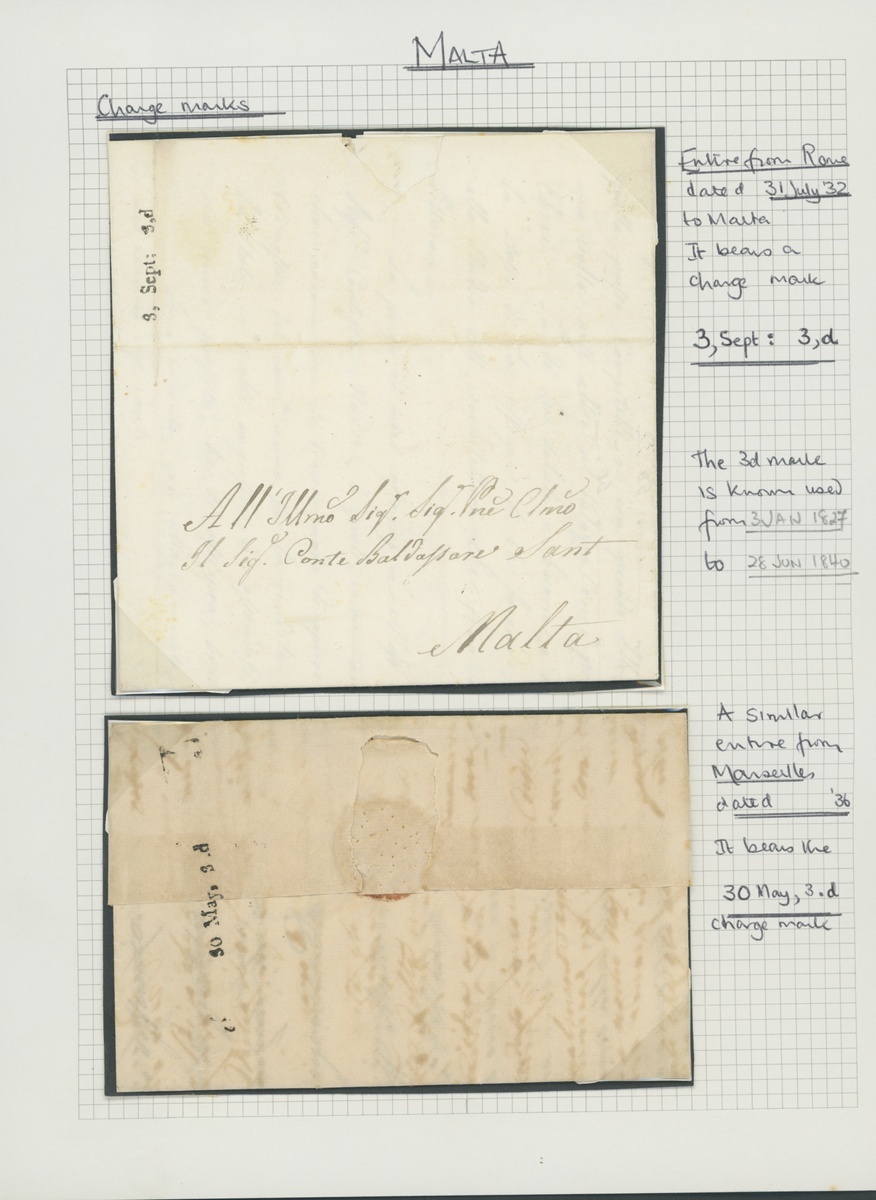 MALTA
Charge marks
Entire from Rome
dated 31 July '32
to Malta
It bears a
charge mark
3, Sept: 3,d
3, Sept: 3,d
All'Illmo Sigr. Sigr. Pne Clmo
Il Sigr. Conte Baldassare Sant
Malta
The 3d mark
is known used
from 3 JAN 1827
to 28 JUN 1840
A similar
entire from
Marseilles
dated '36
It bears the
30 May, 3.d
charge mark
30 May, 3.d